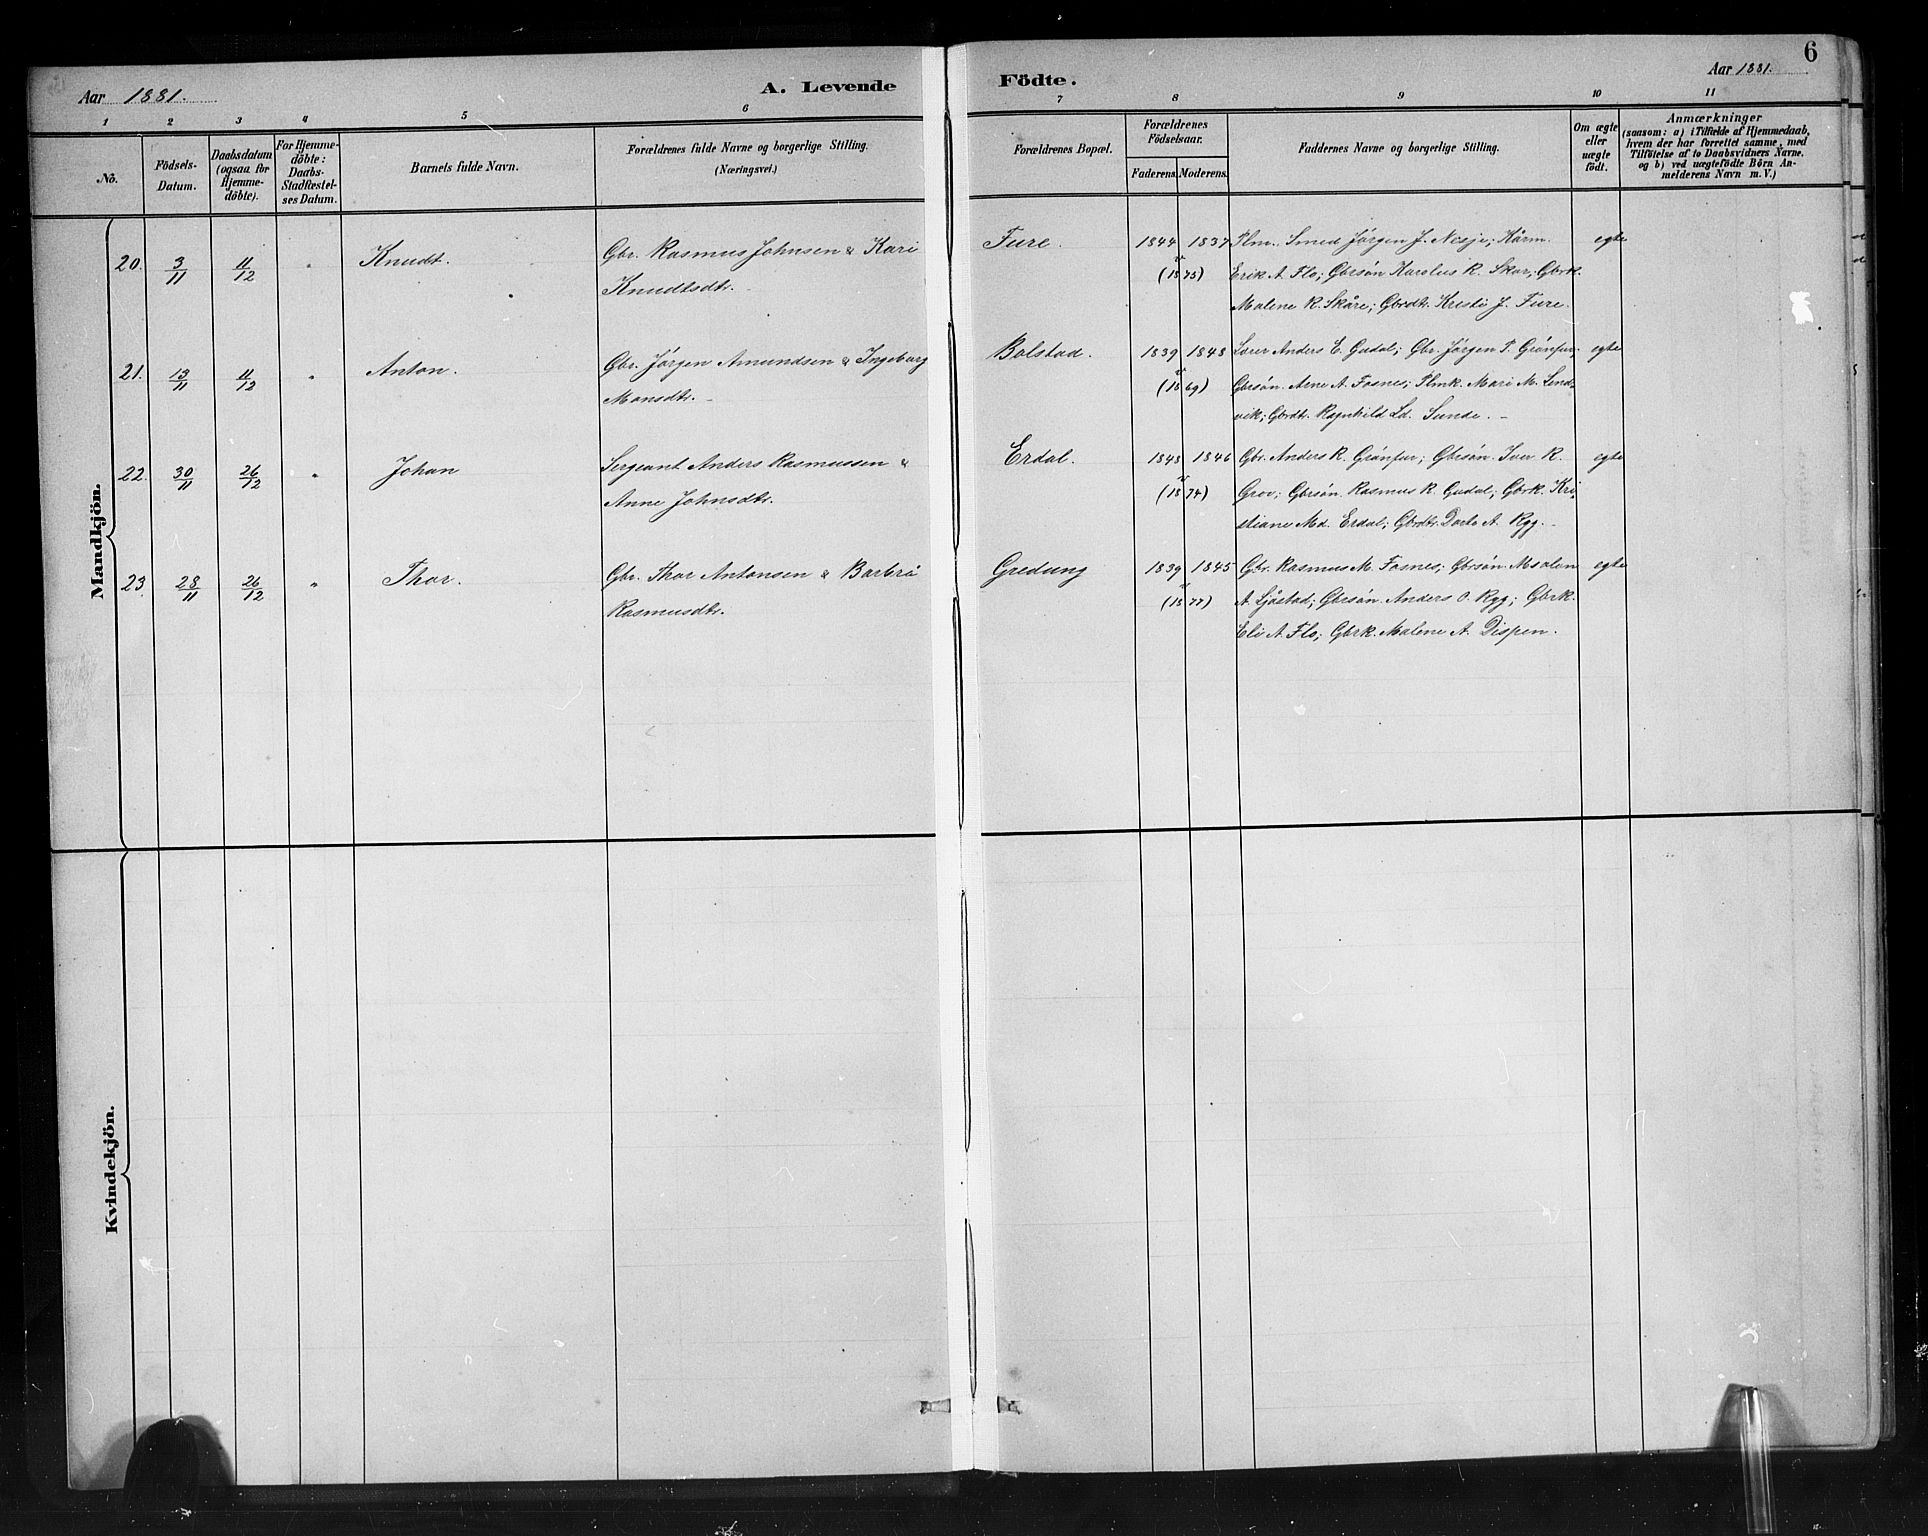 6
Aar 1881.
A. Levende Födte.
Aar 1881.
1 2 3 4 5 6 7 8 9 10 11
No.
Födsels-
Datum.
Daabsdatum
(ogsaa for
Hjemme-
döbte).
For Hjemme-
döbte:
Daabs-
Stadfæstel-
ses Datum.
Barnets fulde Navn.
Forældrenes fulde Navne og borgerlige Stilling.
(Næringsvei.)
Forældrenes Bopæl.
Forældrenes
Födselsaar.
Faderens. Moderens.
Faddernes Navne og borgerlige Stilling.
Om ægte
eller
uægte
födt.
Anmærkninger
(saasom: a) i Tilfælde af Hjemmedaab,
hvem der har forrettet samme, med
Tilföielse af to Daabsvidners Navne.
og b) ved uægtefödte Börn An-
melderens Navn m. V.)
Mandkjön.
20. 3/11 11/12 " Knudt. Gbr. Rasmus Johnsen & Kari Fure. 1844 1837 Plm. Smed Jørgen J. Nesje; Kårm. egte
Knudtsdtr. (18 75) Erik A. Flo; Gbrsøn Karolus R. Skar; Gbrk.
Malene R. Skåre; Gbrdtr. Kristi J. Fure.
21. 13/11 11/12 " Anton. Gbr. Jørgen Amundsen & Ingeborg Bolstad. 1839 1848 Lærer Anders E. Gudal; Gbr. Jørgen P. Grønfur. egte
Monsdtr. (18 69) Gbrsøn. Arne A. Fosnes; Plmk. Mari M. Lend-
vik; Gbrdtr. Ragnhild Ld. Sunde.
22. 30/11 26/12 " Johan Sergeant Anders Rasmussen & Erdal. 1848 1846 Gbr. Anders R. Grønfur; Gbrsøn. Iver R. egte
Anne Johnsdtr. (18 74) Grov; Gbrsøn. Rasmus R. Gudal; Gbrk. Kri-
stiane Md. Erdal; Gbrdtr. Dorte A. Ryg.
23. 28/11 26/12 " Thor. Gbr. Thor Antonsen & Barbrå Gredung 1839 1845 Gbr. Rasmus M. Fosnes; Gbrsøn. Msolen egte
Rasmusdtr. (18 77) A. Ljåstad; Gbrsøn. Anders O. Ryg; Gbrk.
Eli A. Flo; Gbrk. Malene A. Dispen.
Kvindekjön.